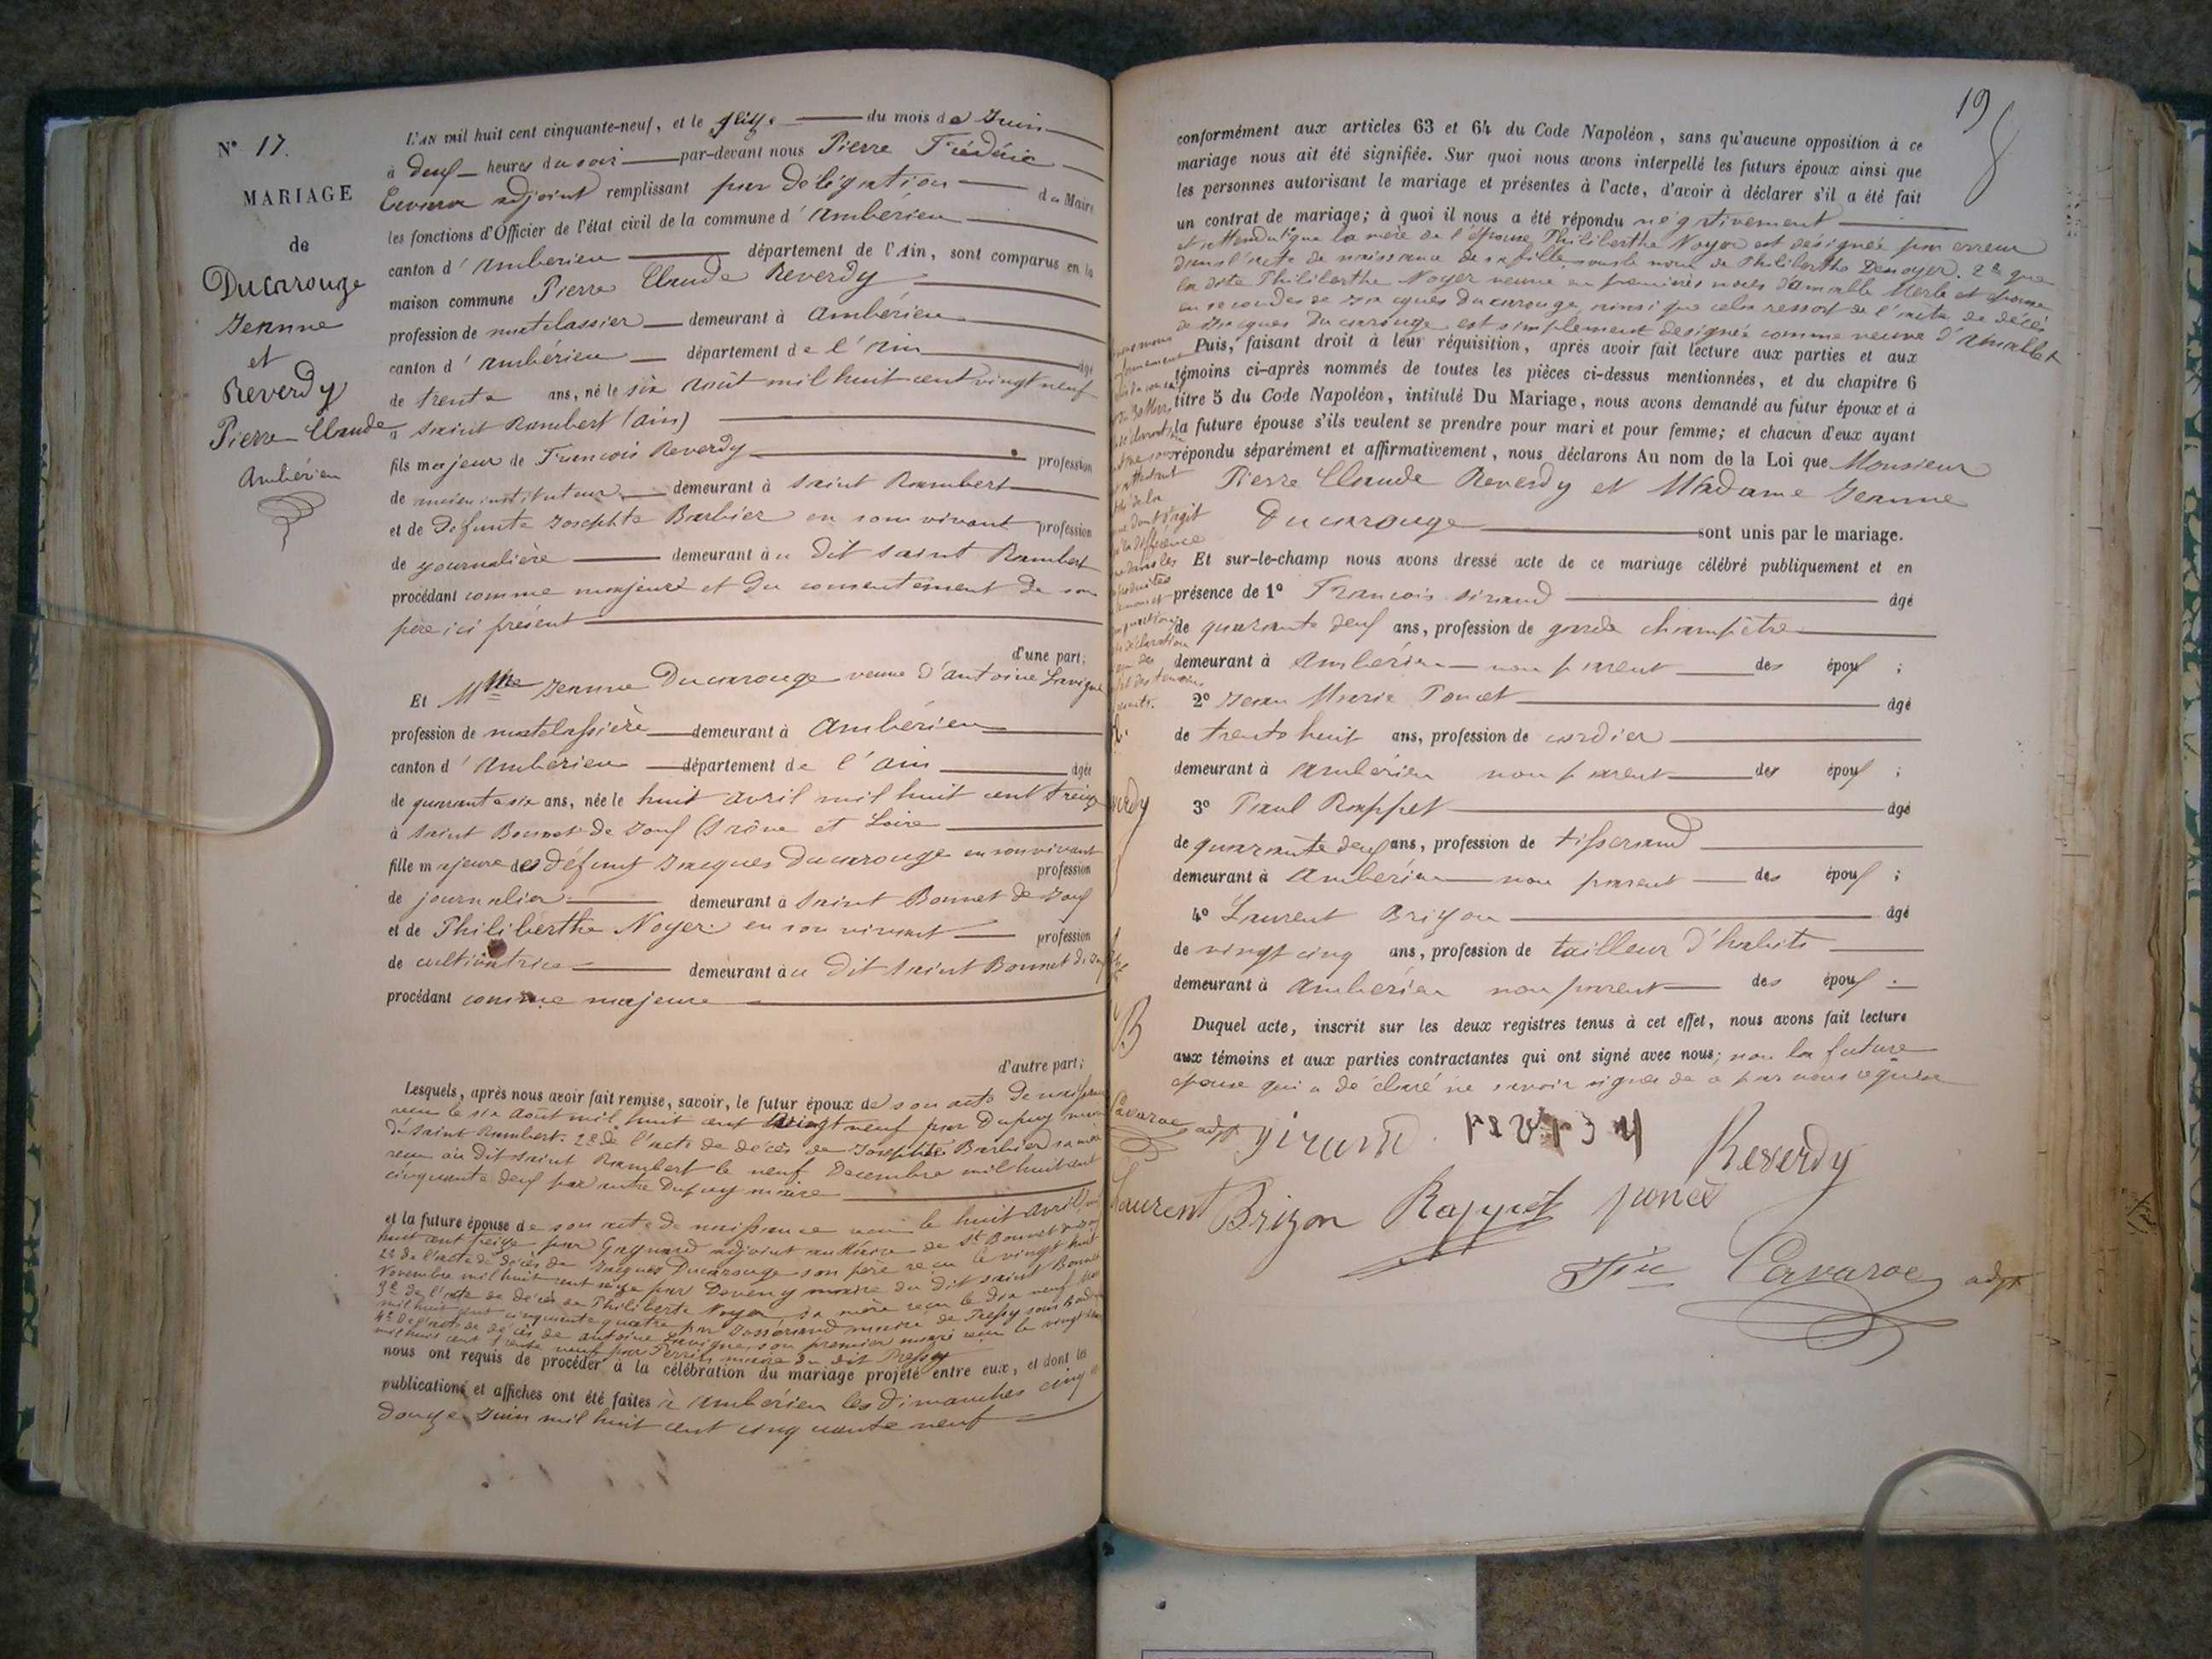 N° 17.
MARIAGE
de
Ducarouge
Jeanne
et
Reverdy
Pierre Claude
Ambérieu
L'AN mil huit cent cinquante-neuf, et le du mois de Juin
à deux heures du soir par-devant nous Pierre Frédéric
adjoint remplissant par délégation du Maire
les fonctions d'Officier de l'état civil de la commune d'Ambérieu
canton d'Ambérieu département de l'Ain, sont comparus en la
maison commune Pierre Claude Reverdy
profession de matelassier demeurant à Ambérieu
canton d'Ambérieu département de l'Ain âgé
de trente ans, né le six août mil huit cent vingt neuf
à Saint Rambert (Ain)
fils majeur de François Reverdy profession
de ancien instituteur demeurant à Saint Rambert
et de défunte Josephte Barbier en son vivant profession
de journalière demeurant à u dit Saint Rambert
procédant comme majeur et du consentement de son
père ici présent
d'une part;
Et Mme Jeanne Ducarouge veuve d'Antoine Lavigne
profession de matelassière demeurant à Ambérieu
canton d'Ambérieu département de l'Ain âgée
de quarante six ans, née le huit avril mil huit cent treize
à Saint Bonnet de Joux (Saône et Loire
fille majeure des défunt Jacques Ducarouge en son vivant
profession
de journalier demeurant à Saint Bonnet de Joux
et de Philiberthe Noyer en son vivant profession
de cultivatrice demeurant à u dit Saint Bonnet de Joux
procédant comme majeure
d'autre part;
Lesquels, après nous avoir fait remise, savoir, le futur époux de son acte de naissance
reçu le six août mil huit cent vingt neuf par Dupuy maire
de Saint Rambert. 2° de l'acte de décès de Josephte Barbier sa mère
reçu au dit Saint Rambert le neuf Decembre mil huit cent
cinquante deux par autre Dupuy maire
et la future épouse de son acte de naissance reçu le huit avril mil
huit cent treize par Gaynard adjoint au Maire de St Bonnet de Joux
2° de l'acte de décès de Jacques Ducarouge son père reçu le vingt huit
Novembre mil huit cent seize par Deveny maire du dit Saint Bonnet
3° de l'acte de décès de Philiberte Noyer sa mère reçu le dix neuf
mil huit cent cinquante quatre par Josserand maire de Pressy sous Dondin
4° de l'acte de décès de Antoine Lavigne, son premier mari reçu le vingt
mil huit cent trente neuf par Perrin maire du dit Pressy
nous ont requis de procéder à la célébration du mariage projeté entre eux, et dont les
publications et affiches ont été faites à Ambérieu les dimanches cinq et
douze Juin mil huit cent cinquante neuf
19
conformément aux articles 63 et 64 du Code Napoléon, sans qu'aucune opposition à ce
mariage nous ait été signifiée. Sur quoi nous avons interpellé les futurs époux ainsi que
les personnes autorisant le mariage et présentes à l'acte, d'avoir à déclarer s'il a été fait
un contrat de mariage; à quoi il nous a été répondu négativement
et attendu 1° que la mère de l'épouse Philiberthe Noyer est désignée par erreur
dans l'acte de naissance de sa fille sous le nom de Philiberthe Denoyer. 2° que
la dite Philiberthe Noyer veuve en premières noces d'Amable Merle et épouse
en secondes de Jacques Ducarouge ainsi que cela ressort de l'acte de décès
de Jacques Ducarouge est simplement désignée comme veuve d'
Puis, faisant droit à leur réquisition, après avoir fait lecture aux parties et aux
témoins ci-après nommés de toutes les pièces ci-dessus mentionnées, et du chapitre 6
titre 5 du Code Napoléon, intitulé Du Mariage, nous avons demandé au futur époux et à
la future épouse s'ils veulent se prendre pour mari et pour femme; et chacun d'eux ayant
répondu séparément et affirmativement, nous déclarons Au nom de la Loi que Monsieur
Pierre Claude Reverdy et Madame Jeanne
Ducarouge sont unis par le mariage.
Et sur-le-champ nous avons dressé acte de ce mariage célébré publiquement et en
présence de 1° François Sirand âgé
de quarante deux ans, profession de garde champêtre
demeurant à Ambérieu non parent des époux ;
2° Jean Marie Poncet âgé
de trente huit ans, profession de cordier
demeurant à Ambérieu non parent des époux ;
3° Paul Rappet âgé
de quarante deux ans, profession de tisserand
demeurant à Ambérieu non parent des époux ;
4° Laurent Brizon âgé
de vingt cinq ans, profession de tailleur d'habits
demeurant à Ambérieu non parent des époux .
Duquel acte, inscrit sur les deux registres tenus à cet effet, nous avons fait lecture
aux témoins et aux parties contractantes qui ont signé avec nous; non la future
épouse qui a déclaré ne savoir signer de ce par nous requise
Reverdy
Laurent Brizon Rappet poncet
Fic Cavaroc adjt